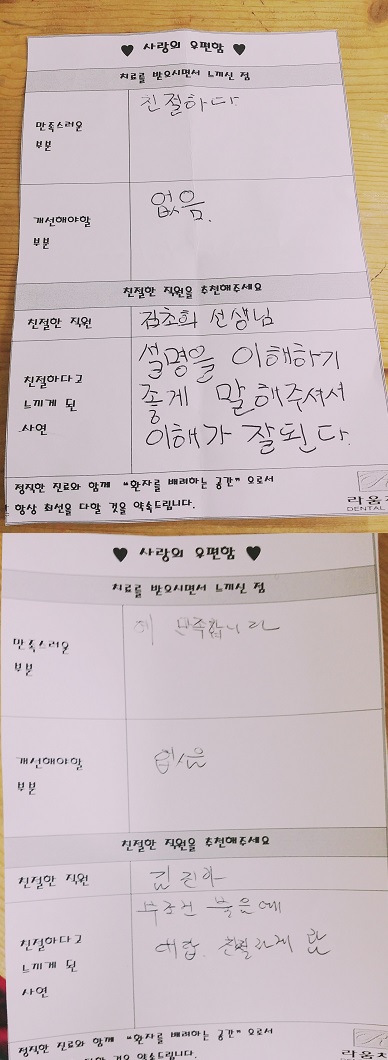 ♥ 사랑의 우편함 ♥
치료를 받으시면서 느끼신 점
만족스러운
부분
친절하다
개선해야할
부분
없음.
친절한 직원을 추천해주세요
친절한 직원
김초희 선생님
친절하다고
느끼게 된
사연
설명을 이해하기
좋게 말해주셔서
이해가 잘된다.
정직한 진료와 함께 "환자를 배려하는 공간" 으로서
항상 최선을 다할 것을 약속드립니다.
라움
DENTAL
♥ 사랑의 우편함 ♥
치료를 받으시면서 느끼신 점
만족스러운
부분
만족합니다
개선해야할
부분
없음
친절한 직원을 추천해주세요
친절한 직원
김진아
친절하다고
느끼게 된
사연
무조건 물음에
대답. 친절하게
정직한 진료와 함께 "환자를 배려하는 공간" 으로서
다할 것을 약속드립니다.
라움